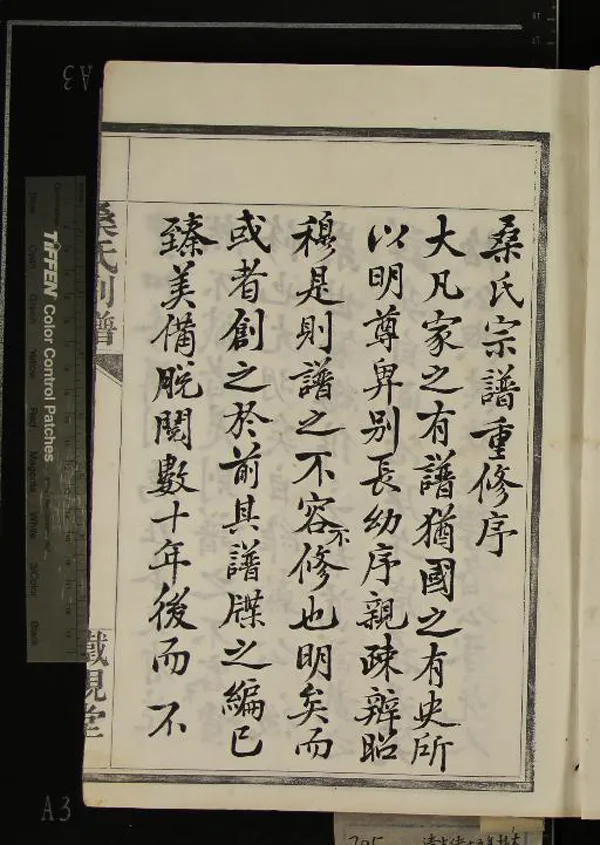 桑氏宗譜重修序
大凡家之有譜猶國之有史所
以明尊卑别長幼序親疎辨昭
穆是則譜之不容不修也明矣而
或者創之於前其譜牒之編已
臻美備脱閲數十年後而不
桑氏列譜
堂
TIFFEN Color Control Patches
Blue
Cyan
Green
Yellow
Red
Magenta
White
3/Color
Black
A3
A3
705